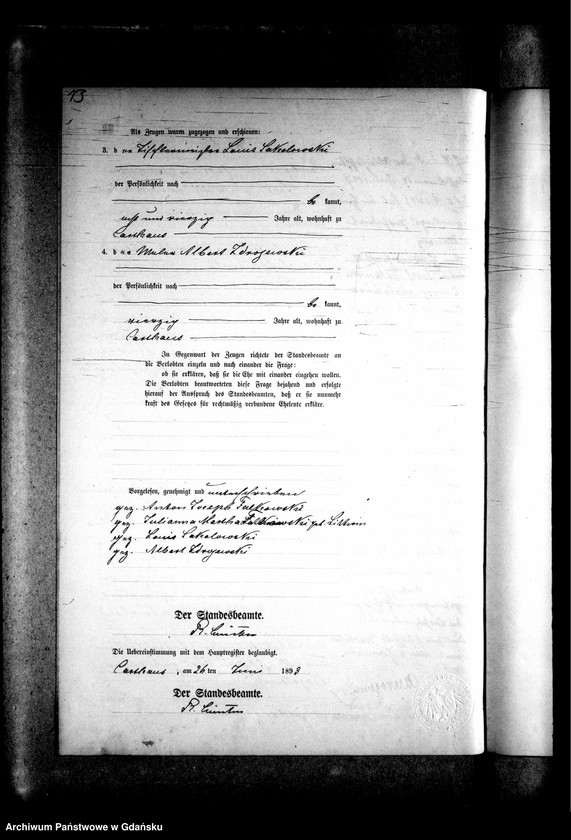 13
Als Zeugen waren zugezogen und erschienen:
3. der Tischlermeister Louis Sakolowski
der Persönlichkeit nach
be kannt,
acht und vierzig Jahre alt, wohnhaft zu
Carthaus
4. der Maler Albert Zdrojewski
der Persönlichkeit nach
be kannt,
vierzig Jahre alt, wohnhaft zu
Carthaus
In Gegenwart der Zeugen richtete der Standesbeamte an
die Verlobten einzeln und nach einander die Frage:
ob sie erklären, daß sie die Ehe mit einander eingehen wollen.
Die Verlobten beantworteten diese Frage bejahend und erfolgte
hierauf der Ausspruch des Standesbeamten, daß er sie nunmehr
kraft des Gesetzes für rechtmäßig verbundene Eheleute erkläre.
Vorgelesen, genehmigt und unterschrieben
gez. Anton Joseph Falkowski
gez. Julianna Martha Falkowski geb.
gez. Louis Sakolowski
gez. Albert Zdrojewski
Der Standesbeamte.
Die Uebereinstimmung mit dem Hauptregister beglaubigt.
Carthaus, am 26 ten Juni 1893
Der Standesbeamte.
Archiwum Państwowe w Gdańsku